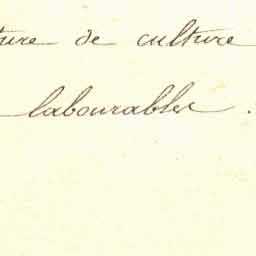 ture de culture
labourables.